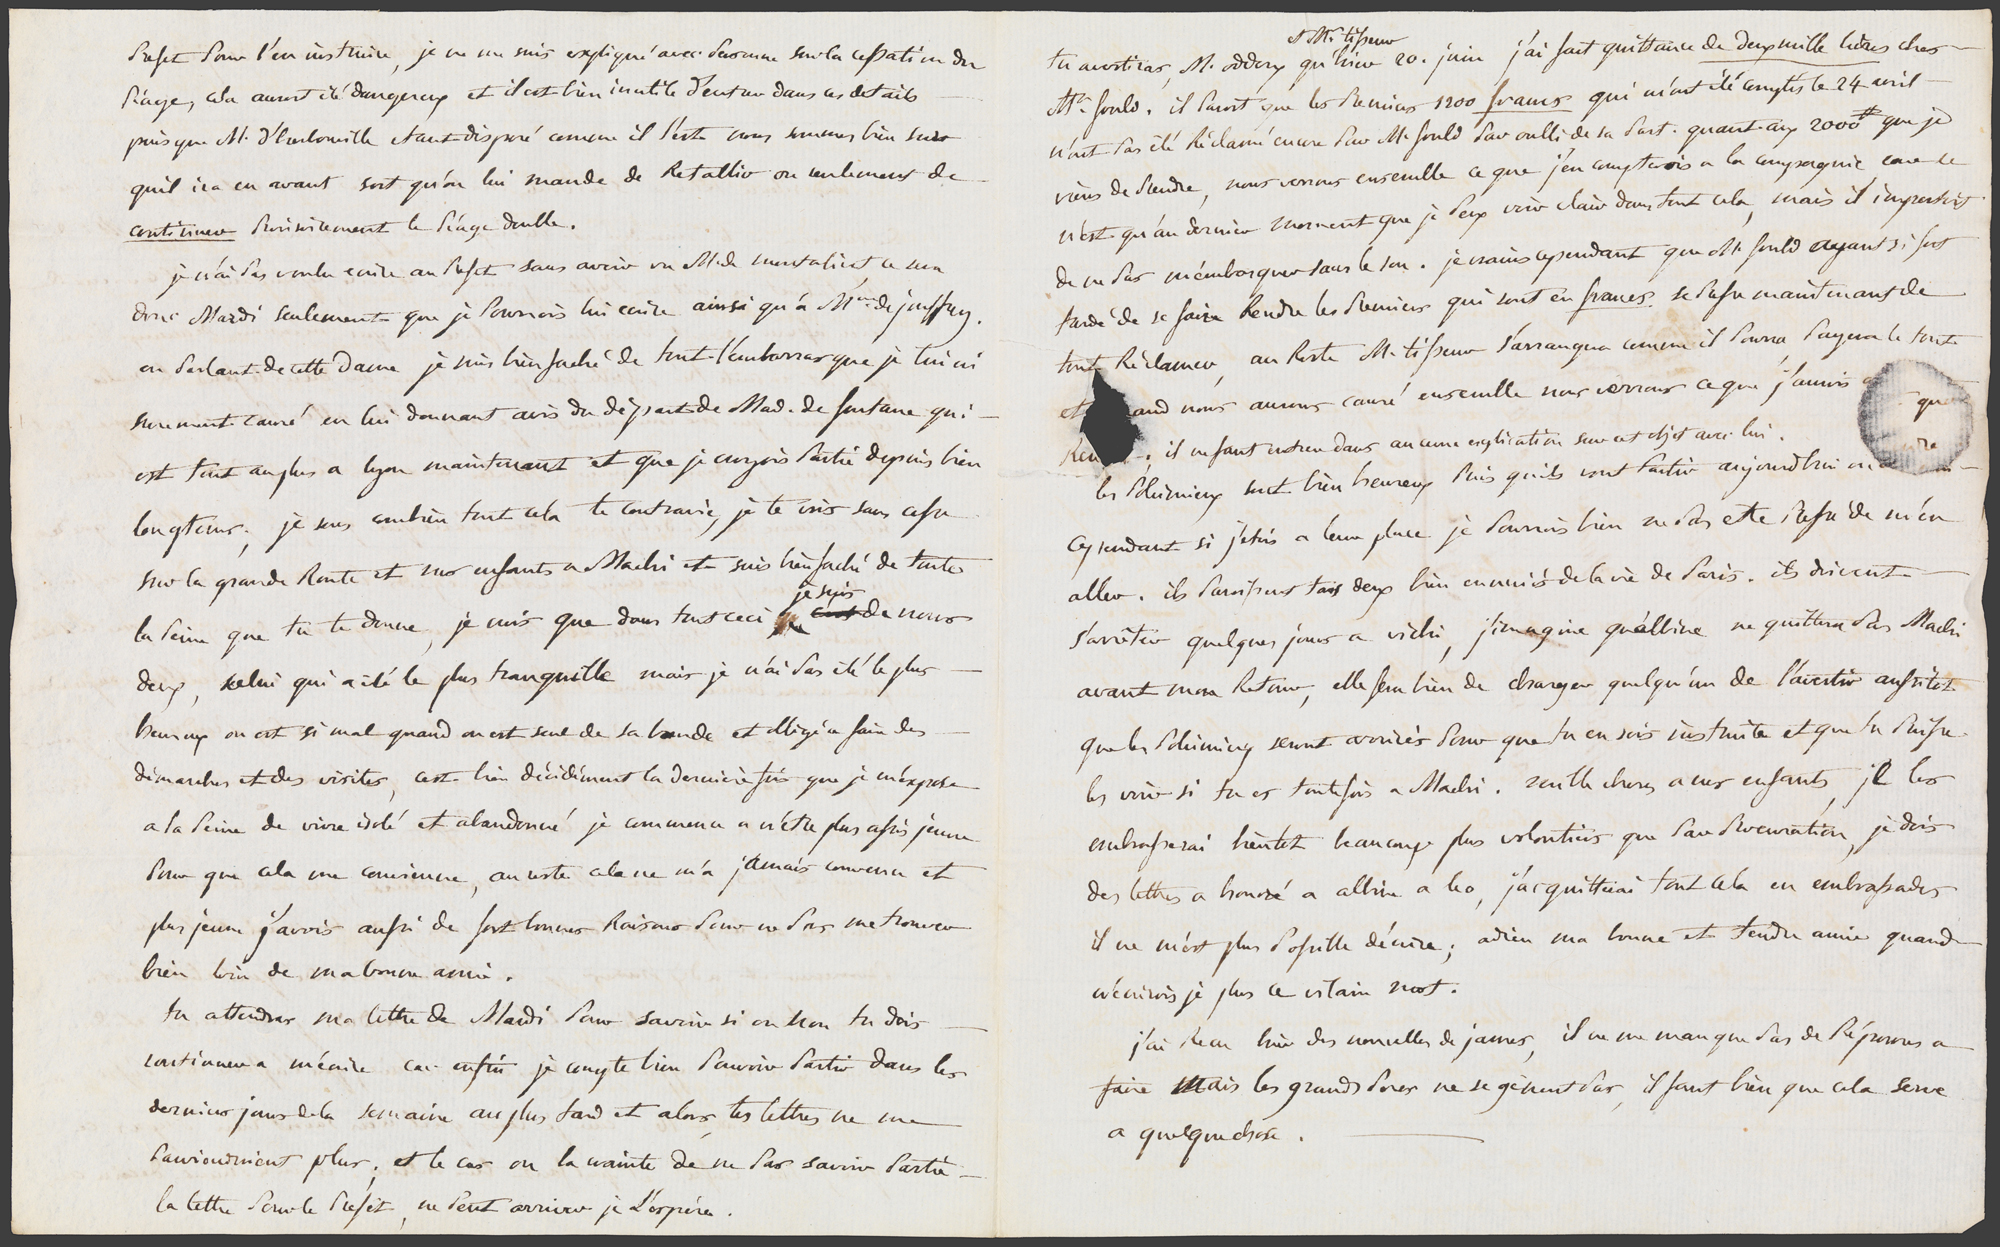 Prefet Pour l'en instruire, je ne me suis expliqué avec Personne sur la cessation du
Péage, cela auroit été dangereux et il est bien inutile d'entrer dans ces details
puisque M. d'herbouville etant disposé comme il l'est nous sommes bien surs
quil ira en avant soit qu'on lui mande de Retablir ou seulement de
continuer Provisoirement le Péage double.
je n'ai Pas voulu ecrire au Prefet sans avoir vu M. de montalivet ce sera
donc Mardi seulement que je Pourrois lui ecrire ainsi qu'a Mme de jouffroy.
en Parlant de cette Dame je suis bien faché de tout l'embarras que je lui ai
surement causé en lui donnant avis du départ de Mad. de fontane qui
est tout au plus a lyon maintenant et que je croyois Partie depuis bien
longtems, je sens combien tout cela te contrarie, je te vois sans cesse
sur la grande Route et nos enfants a Machi et suis bien faché de toute
la Peine que tu te donne, je vois que dans tout ceci je suis de nous
deux, celui qui a été le plus tranquille mais je n'ai Pas été le plus
heureux on est si mal quand on est seul de sa bande et obligé a faire des
démarches et des visites, c'est bien décidément la derniere fois que je m'expose
a la Peine de vivre isolé et abandonné je commence a n'etre plus assés jeune
Pour que cela me convienne, au reste cela ne m'a jamais convenu et
plus jeune j'avois aussi de fort bonnes Raisons Pour ne Pas me trouver
bien loin de ma bonne amie.
tu attendras ma lettre de Mardi Pour savoir si ou Non tu dois
continuer a m'écrire car enfin je compte bien Pouvoir Partir dans les
derniers jours de la semaine au plus tard et alors tes lettres ne me
Parviendroient plus, et le cas ou la crainte de ne Pas savoir Partie
la lettre Pour le Préfet, ne Peut arriver je l'espére.
tu avertiras, M. oddoux et Mr. tisseur qu'hier 20. juin j'ai fait quittance de deux mille livres ches
Mr. fould. il Paroit que les Premiers 1200 francs qui m'ont été comptés le 24 avril
n'ont Pas été Réclamé encore Par M. fould Par oubli de sa Part. quant aux 2000 ₶ que je
viens de Prendre, nous verrons ensemble ce que j'en compterois a la compagnie car ce
n'est qu'au dernier moment que je Peux voir clair dans tout cela, mais il importoit
de ne Pas m'embarquer sans le sou. je crains cependant que M. fould ayant si fort
tardé de se faire Rendre les Premiers qui sont en francs se Presse maintenant de
tout Réclamer, au Reste M. tisseur s'arrangera comme il Pourra Payera le tout
et and nous aurons causé ensemble nous verrons ce que j'aurois
Ren, il ne faut entrer dans aucune explication sur cet objet avec lui.
les Polumieux sont bien heureux Puis qu'ils vont Partir aujourdhui
cependant si j'étois a leur place je Pourrois bien ne Pas etre Pressé de m'en
aller. ils Paroissent tous deux bien ennuiés de la vie de Paris. ils doivent
s'arrêter quelques jours a vichi, j'imagine qu'albine ne quittera Pas Machi
avant mon Retour, elle fera bien de charger quelqu'un de l'avertir aussitot
que les Polumieux seront arrivés Pour que tu en sois instruite et que tu Puisse
les voir si tu es toutefois a Machi. mille choses a nos enfants, je les
embrasserai bientot beaucoup plus volontiers que Par Procuration, je dois
des lettres a honoré a albine a leo, j'acquitterai tout cela en embrassades
il ne m'est plus Possible d'écrire; adieu ma bonne et tendre amie quand
n'écrirois je plus ce vilain mot.
j'ai Recu hier des nouvelles de james, il ne me manque Pas de Réponses a
faire Mais les grands Pores ne se gênent Pas, il faut bien que cela serve
a quelque chose.